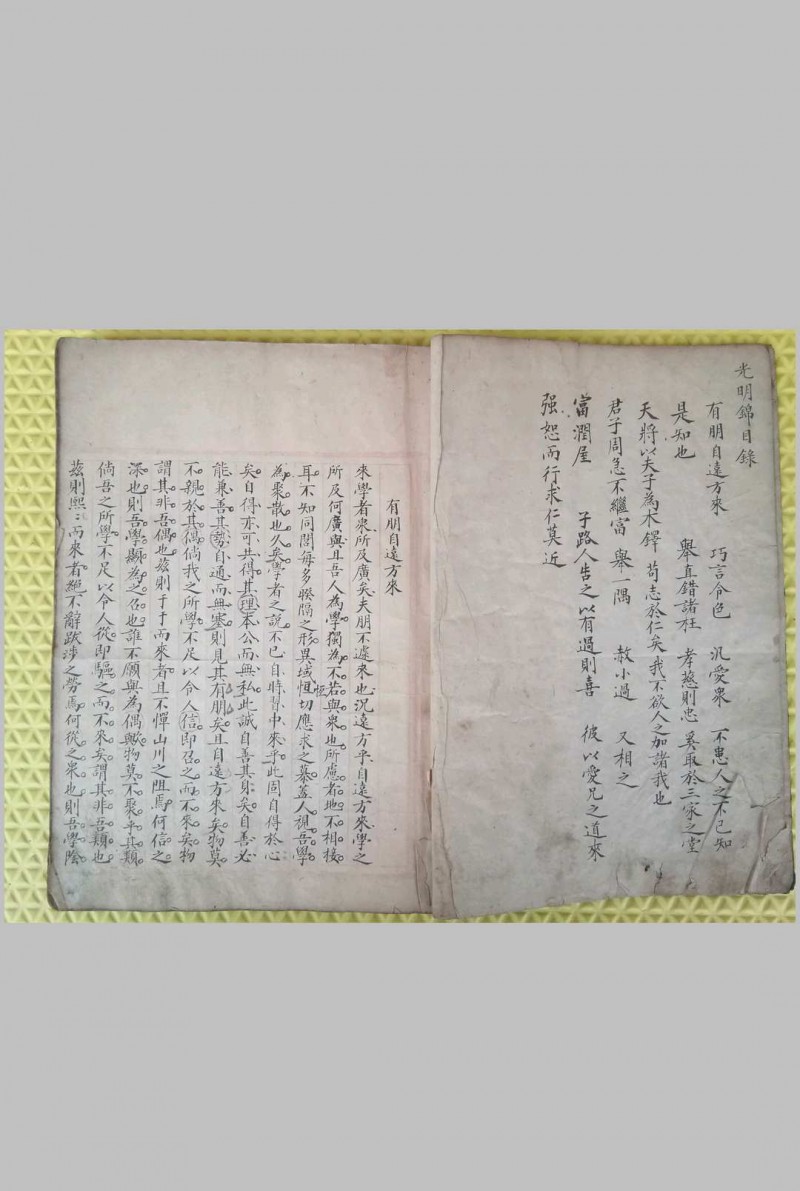 光明錦目錄
有朋自遠方來 巧言令色 汎愛衆 不患人之不己知
是知也 舉直錯諸枉 孝慈則忠 奚取於三家之堂
天將以夫子為木鐸 苟志於仁矣 我不欲人之加諸我也
君子周急不繼富 舉一隅 赦小過 又相之
富潤屋 子路人告之以有過則喜 彼以愛兄之道來
强恕而行求仁莫近
有朋自遠方來
來學者來所及廣矣夫朋不遽來也況遠方乎自遠方來學之
所及何廣與且吾人為學獨為不若與衆也所慮者地不相接
恆
耳不知同閈每多睽隔之形異域恆切應求之慕蓋人視吾學
為聚散也久矣學者之說不已自時習中來乎此固自得於心
矣自得亦可共得其理本公而無私此誠自善其身矣自善必
能兼善其勢自通而無塞則見其有朋矣且自遠方來矣物莫
不親於其偶倘我之所學不足以令人信即召之而不來矣物
謂其非吾偶也茲則于于而來者且不憚山川之阻焉何信之
深也則吾學顯為之召也誰不願與為偶歟物莫不聚乎其類
倘吾之所學不足以令人從即驅之而不來矣謂其非吾類也
茲則熙:而來者絕不辭跋涉之勞焉何從之衆也則吾學陰